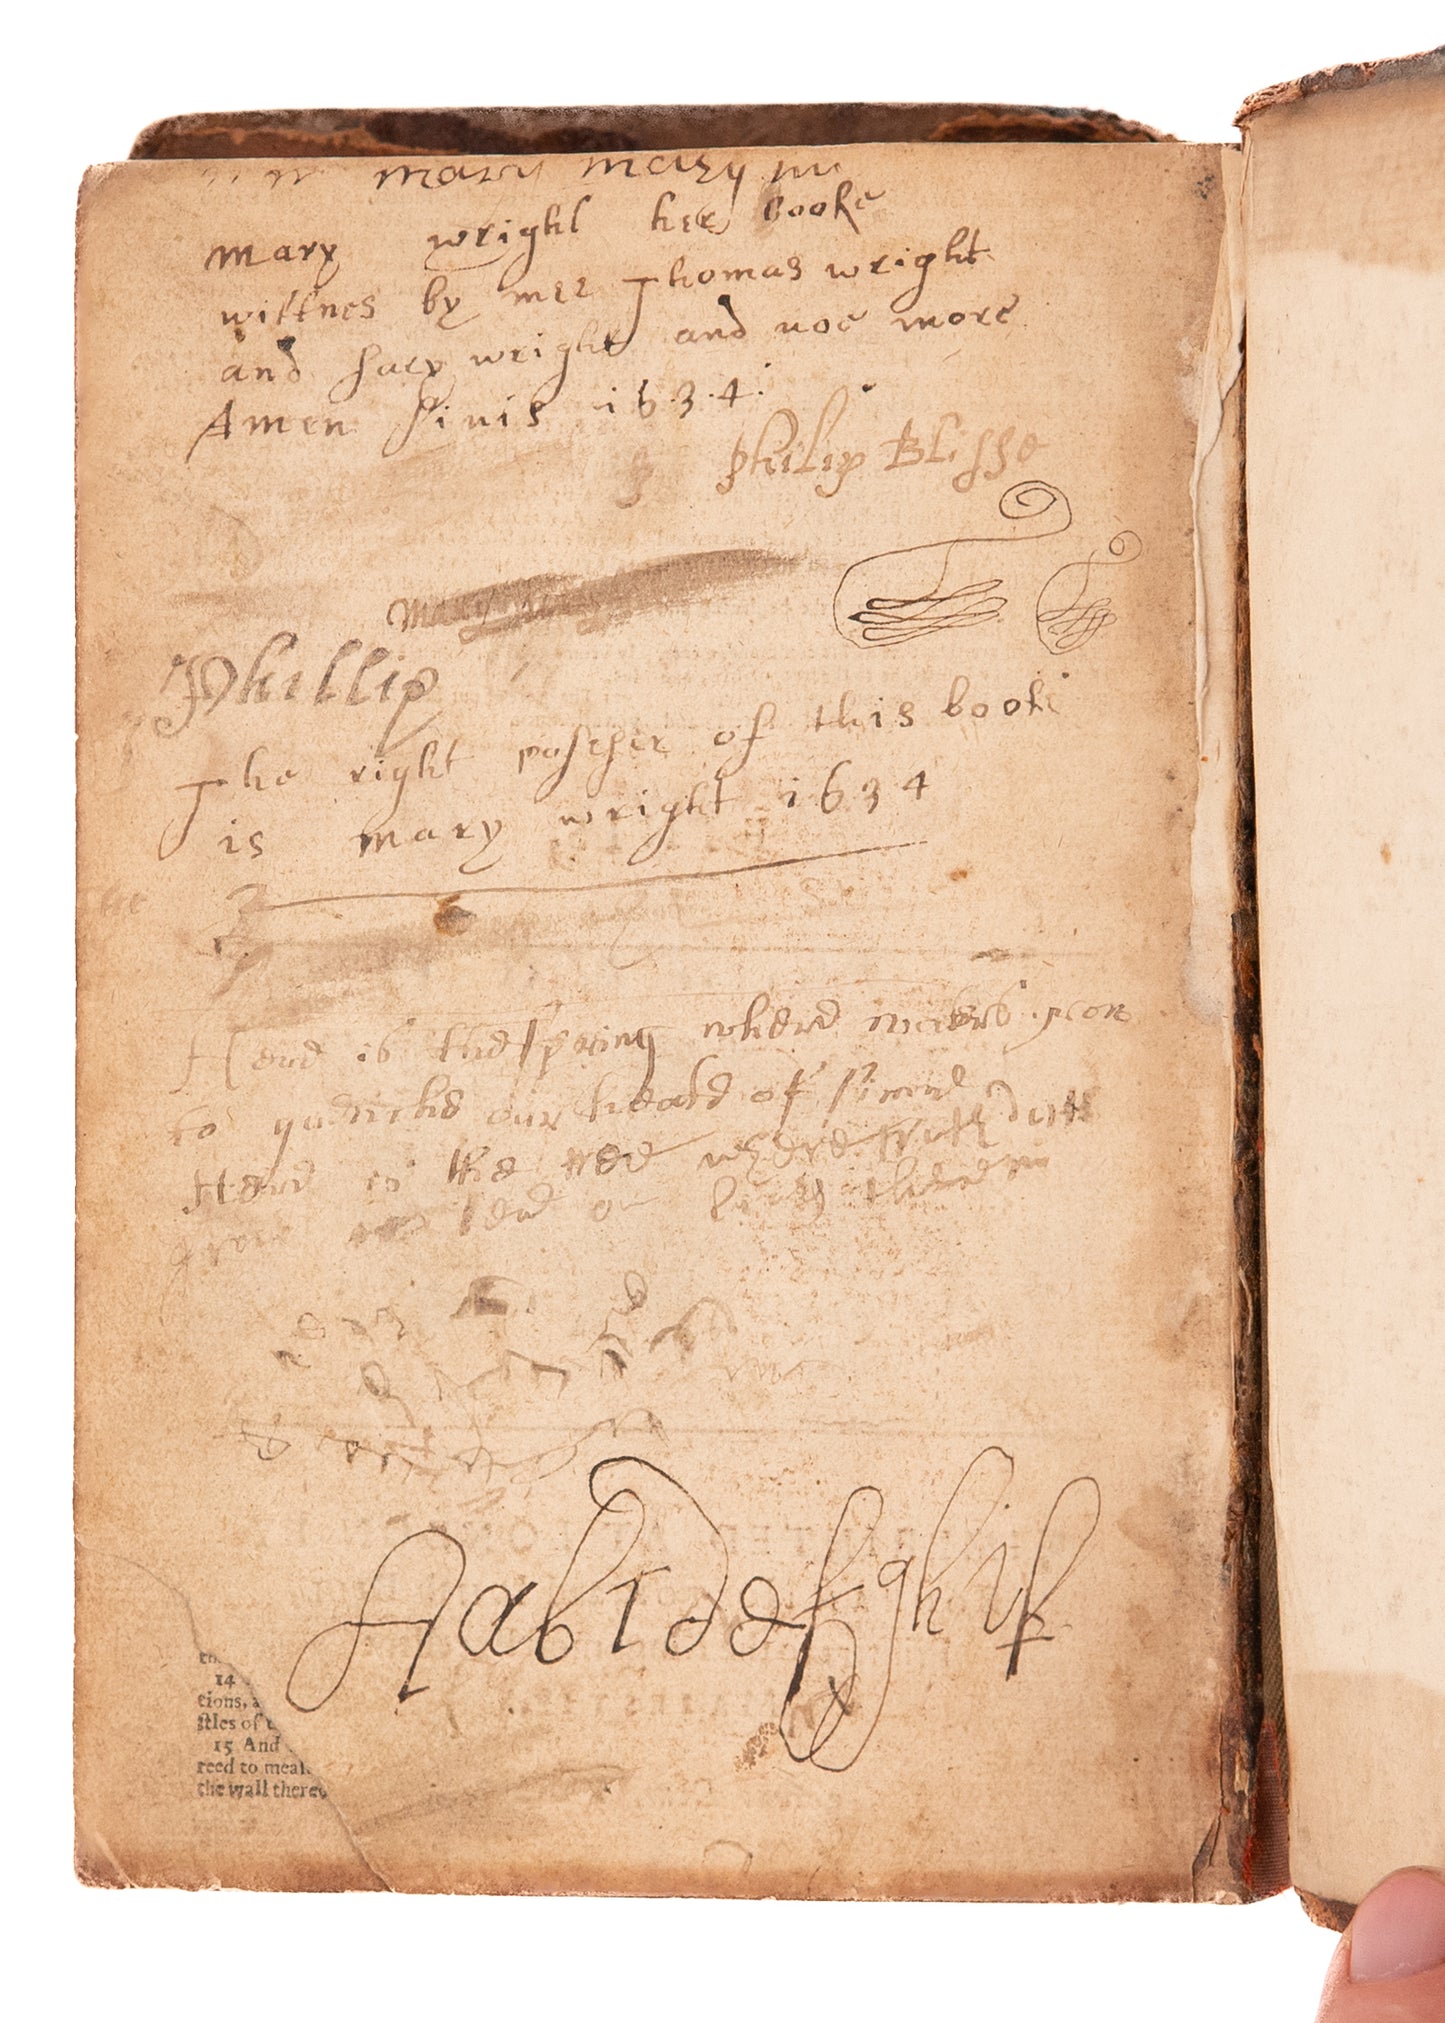 mary mary
mary wright her booke
wittnes by mee Thomas wright
and sary wright and noe more
Amen finis 1634
Philip Blisse
mary
Phillip
The right posseser of this booke
is mary wright 1634
Here is the spring where waters flow
to quenche our heate of sinne
Here is the tree where truth doth
grow our in
A a b c d e f g h i k
14
tions, a
stles of t
15 And
reed to mea
the wall there